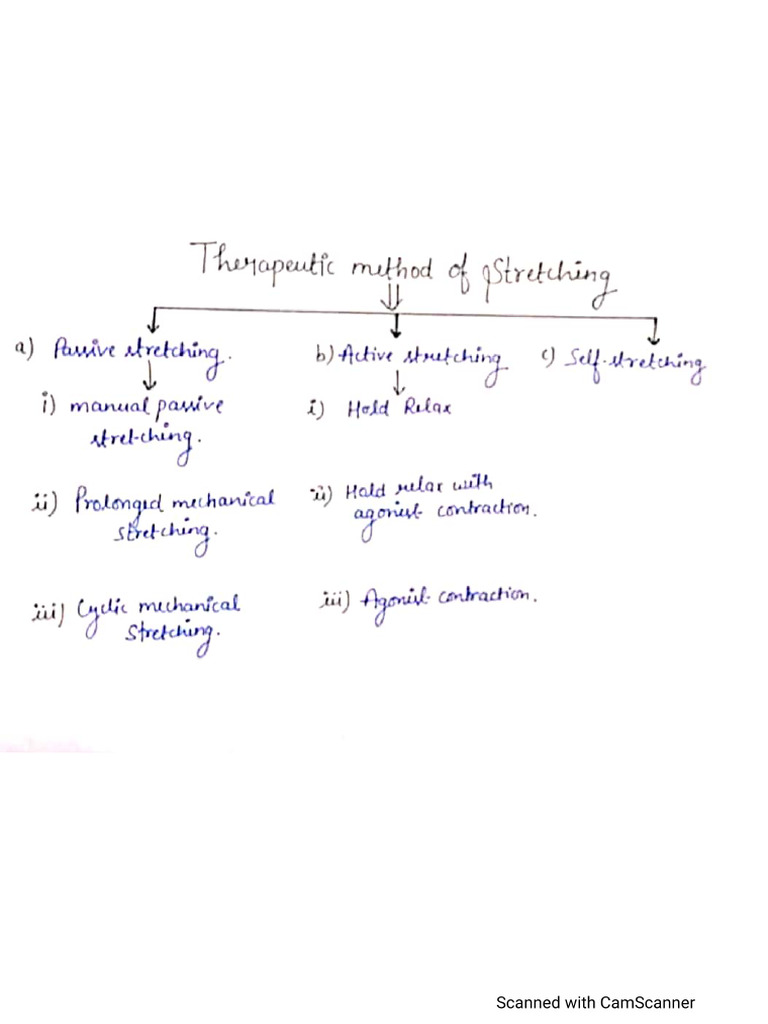 Therapeutic method of Stretching
a) Passive stretching.
b) Active stretching
c) Self-stretching
i) manual passive
stretching.
ii) Prolonged mechanical
stretching.
iii) Cyclic mechanical
Stretching.
i) Hold Relax
ii) Hold relax with
agonist contraction.
iii) Agonist contraction.
Scanned with CamScanner